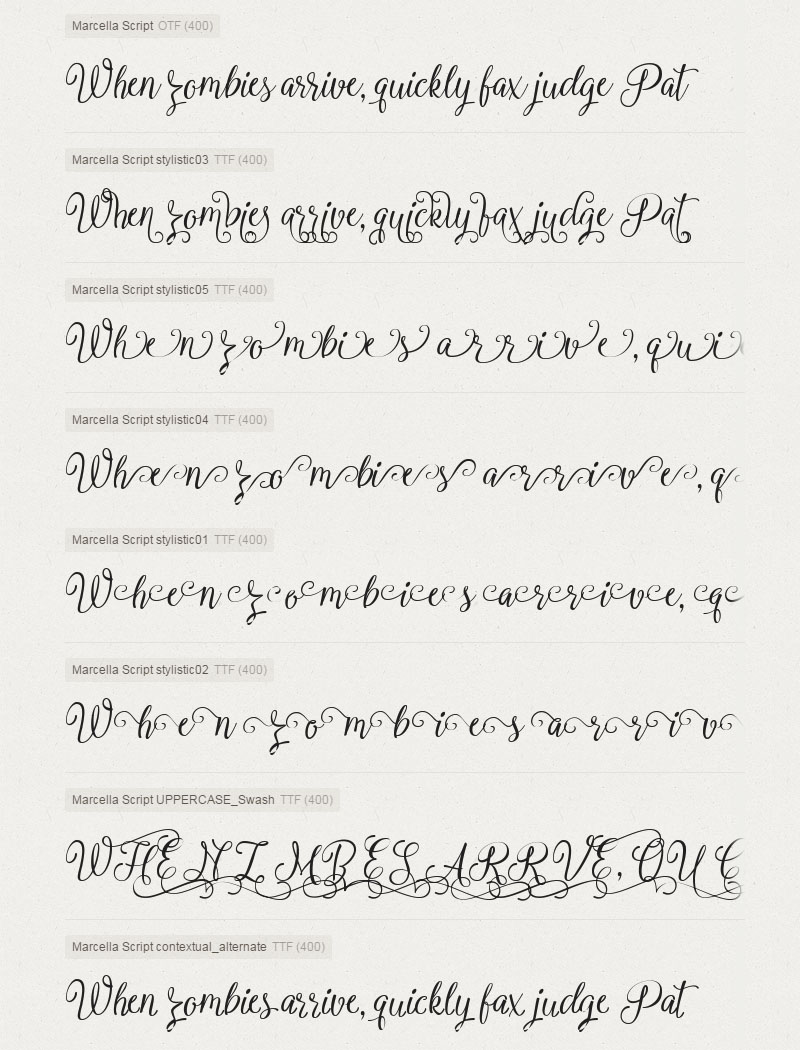 Marcella Script OTF (400)
When zombies arrive, quickly fax judge Pat
Marcella Script stylistic03 TTF (400)
When zombies arrive, quickly fax judge Pat
Marcella Script stylistic05 TTF (400)
When zombies arrive, qui
Marcella Script stylistic04 TTF (400)
When zombies arrive, q
Marcella Script stylistic01 TTF (400)
When zombies arrive, q
Marcella Script stylistic02 TTF (400)
When zombies arriv
Marcella Script UPPERCASE_Swash TTF (400)
WHEN Z MBES ARRVE, QU C
Marcella Script contextual_alternate TTF (400)
When zombies arrive, quickly fax judge Pat